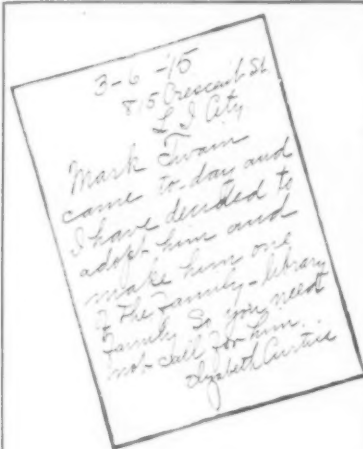 3-6-15
815 Crescent St.
L I City
Mark Twain
came to-day and
I have decided to
adopt him and
make him one
of the Family-library
Family. So you need
not call for him.
Elizabeth Curtice